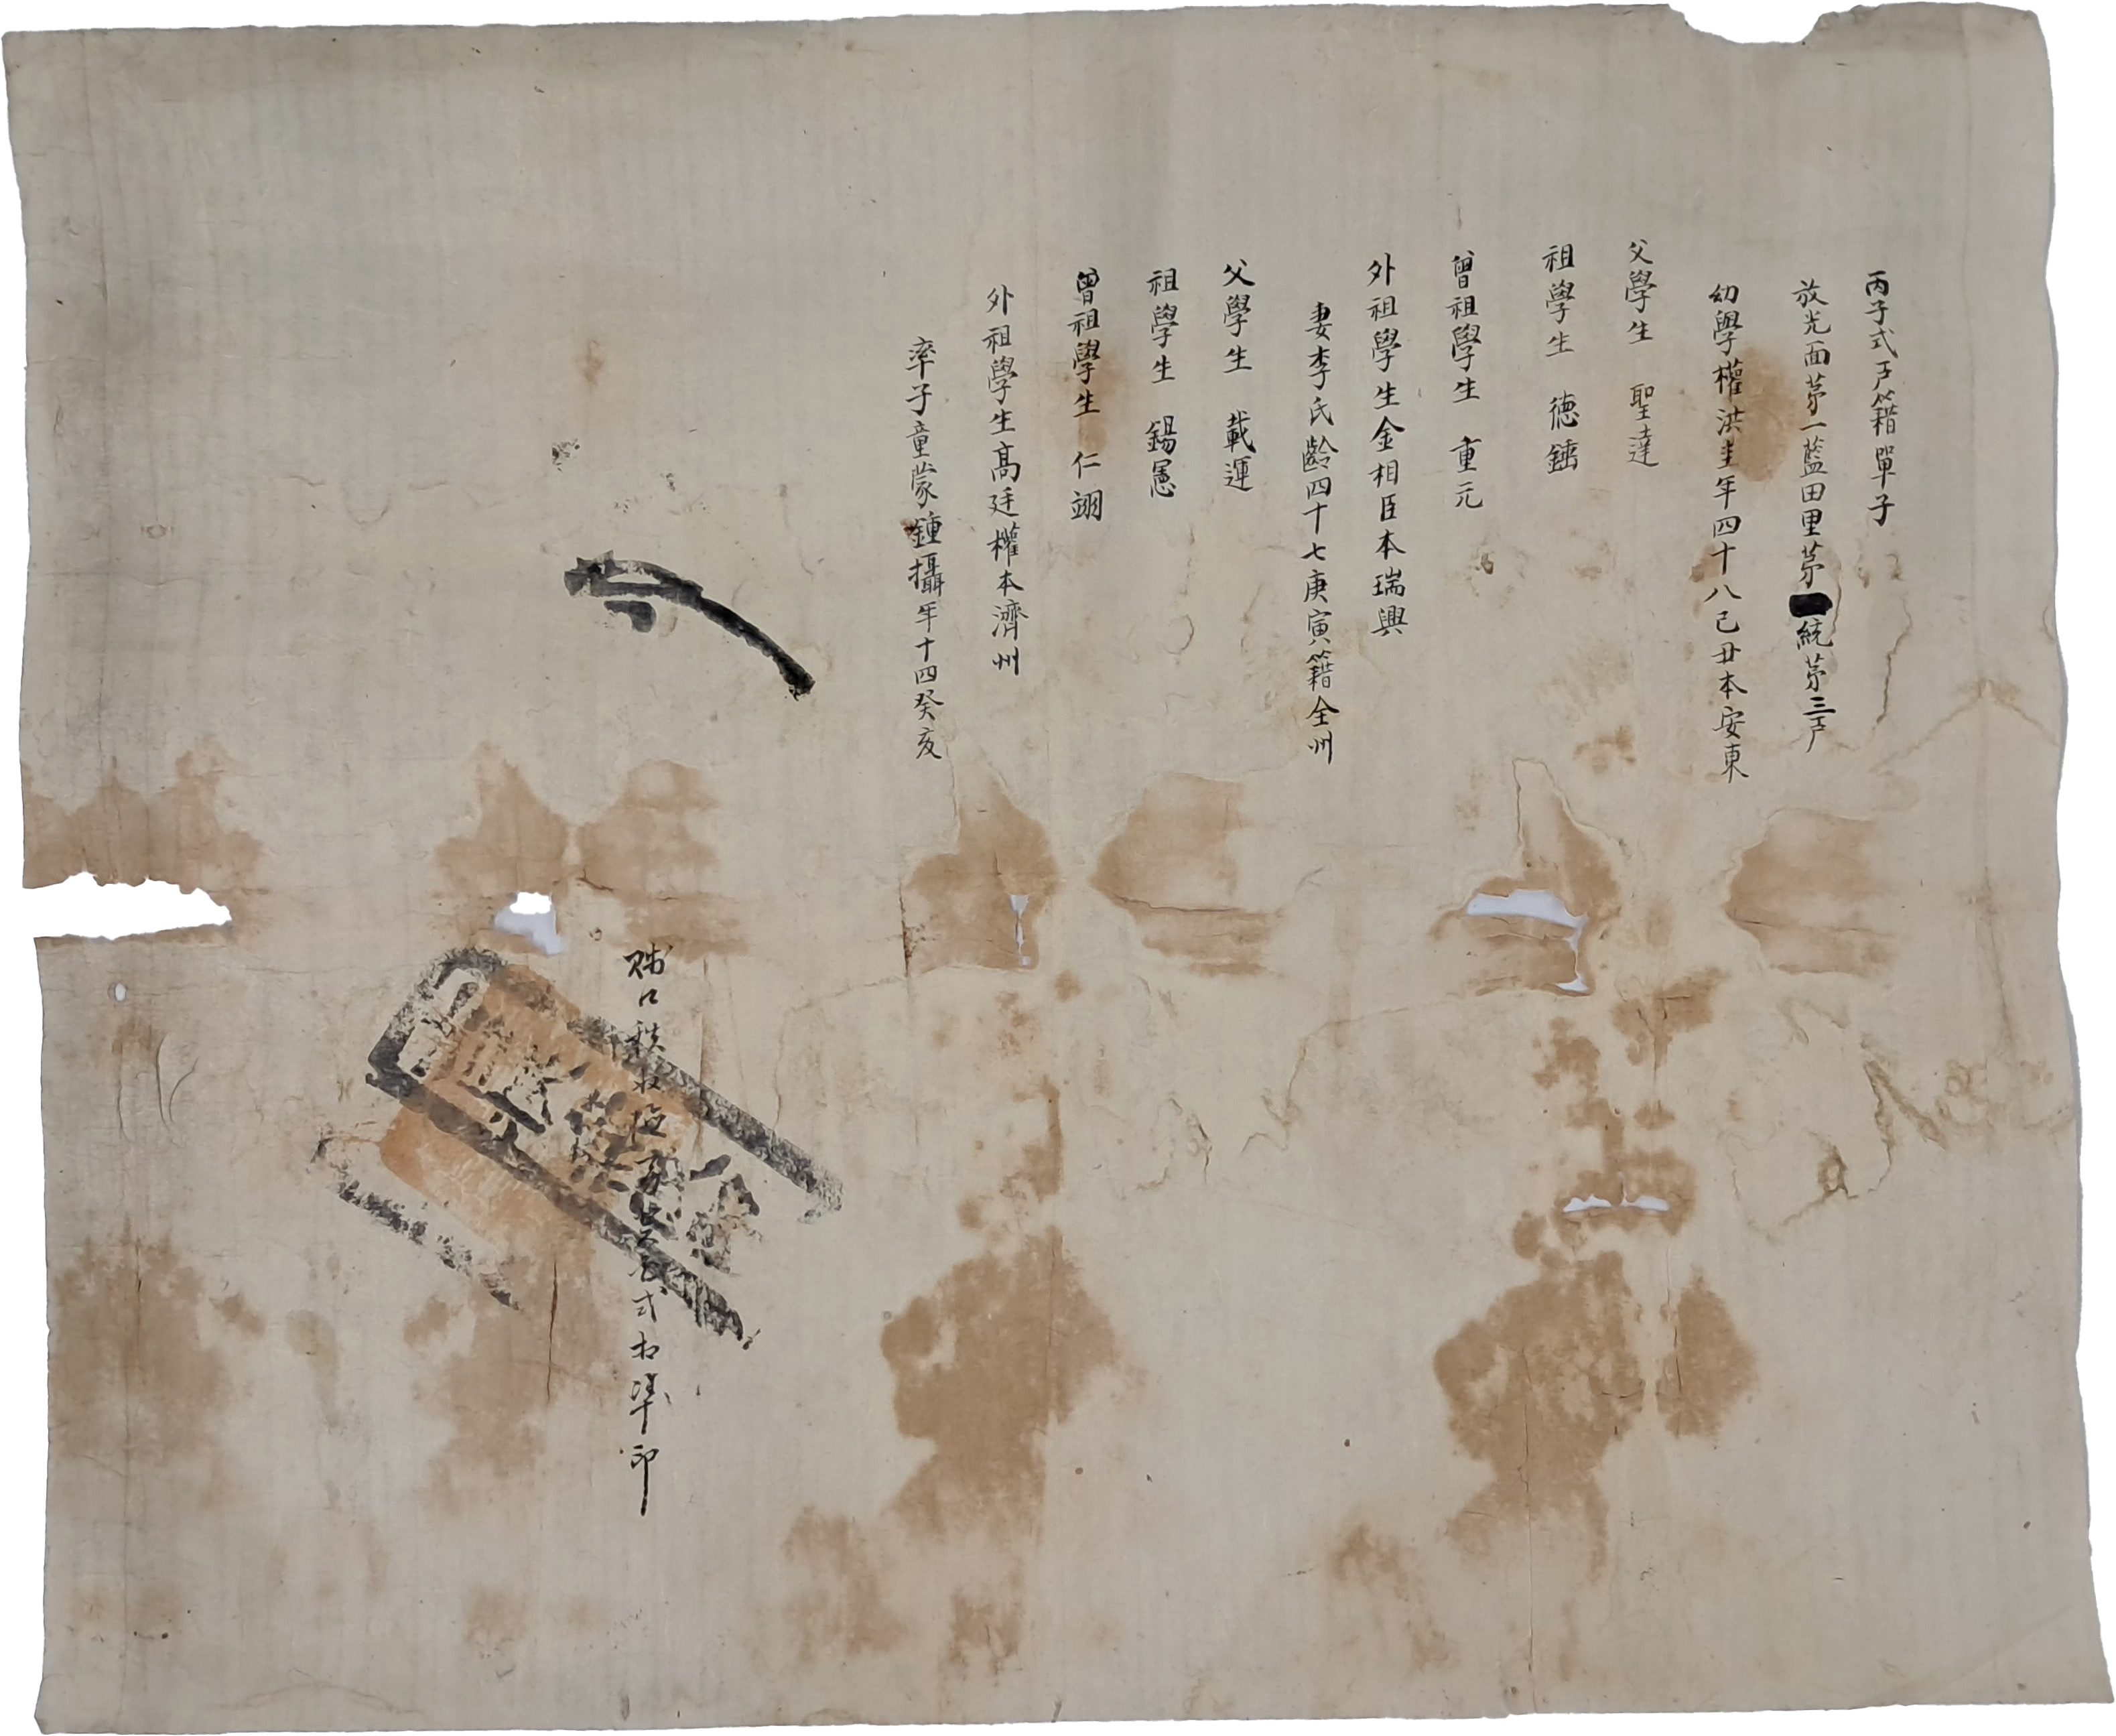 丙子式戶籍單子
放光面苐一藍田里苐一統苐三戶
幼學權洪圭年四十八己丑本安東
父學生 聖達
祖學生 德錘
曾祖學生 重元
外祖學生金相臣本瑞興
妻李氏齡四十七庚寅籍全州
父學生 載運
祖學生 錫愚
曾祖學生 仁翊
外祖學生高廷權本濟州
率子童蒙鍾攝年十四癸亥
賊口秩
式相準印